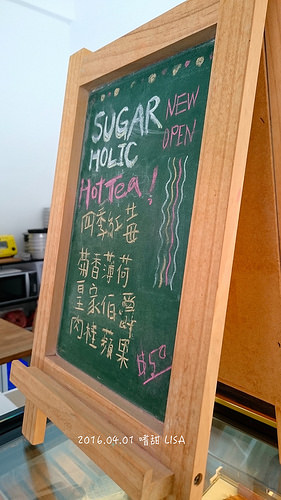 SUGAR
HOLIC
NEW
OPEN
Hot Tea!
四季紅莓
菊香薄荷
皇家伯爵
肉桂蘋果
$50
2016.04.01 嚐甜 LISA